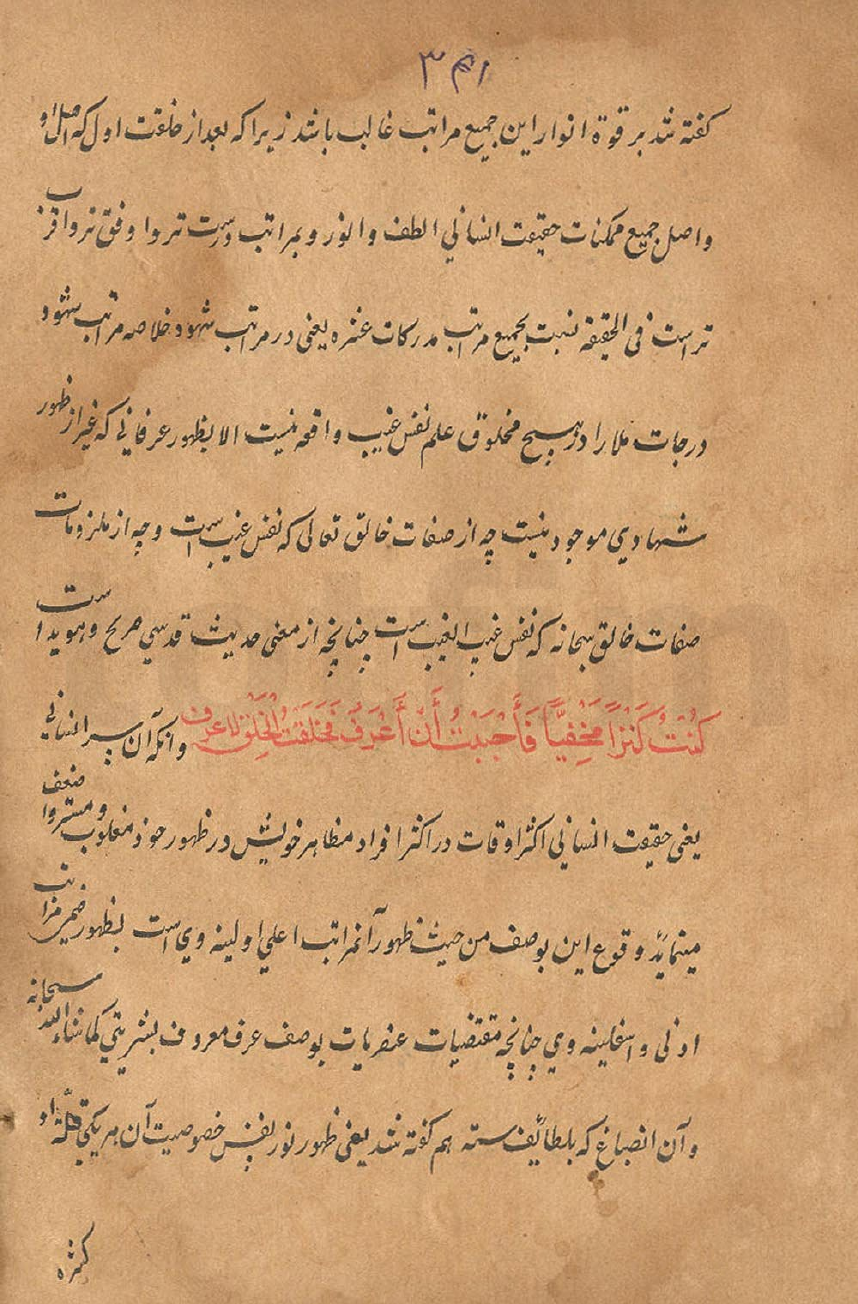 ۳۴۱
کفته شد بر قوة انوار این جمیع مراتب غالب باشد زیرا که بعد از خلقت اول که اصل او
و اصل جمیع ممکنات حقیقت انسانی الطف و النور و بمراتب درست تر و اوفق تر و اقرب
تر است فی الحقیقه نسبت بجمیع مراتب مدرکات عنره یعنی در مراتب شهود خلاصه مراتب شهود
درجات ملا را در هیچ مخلوق علم نفس غیب واقعه نیست الا بظهور عرفانی که غیر از ظهور
شهادی موجود نیست چه از صفات خالق تعالی که نفس غیب است و چه از ملزومات
صفات خالق سبحانه که نفس غیب الغیب است چنانچه از معنی حدیث قدسی صریح و هویدا است
كُنْتُ كَنْزًا مَخْفِيًّا فَأَحْبَبْتُ أَنْ أُعْرَفَ فَخَلَقْتُ الْخَلْقَ لاعرف و انکه آن سر انسانی
یعنی حقیقت انسانی اکثر اوقات در اکثر افراد مظاهر خویش در ظهور خود مغلوب و مستر و اضعف
مینماید وقوع این بوصف من حیث ظهور آنمراتب اعلی اولینه وی است بظهور ضمن مراتب
ادنی و اسفلینه وی چنانچه مقتضیات عنصریات بوصف عرف معروف بشریتی کماشاء الله سبحانه
و آن انصباغ که بلطائف سته هم کفته شد یعنی ظهور نور بنفس خصوصیت آن بهریکی قلة او
کثره